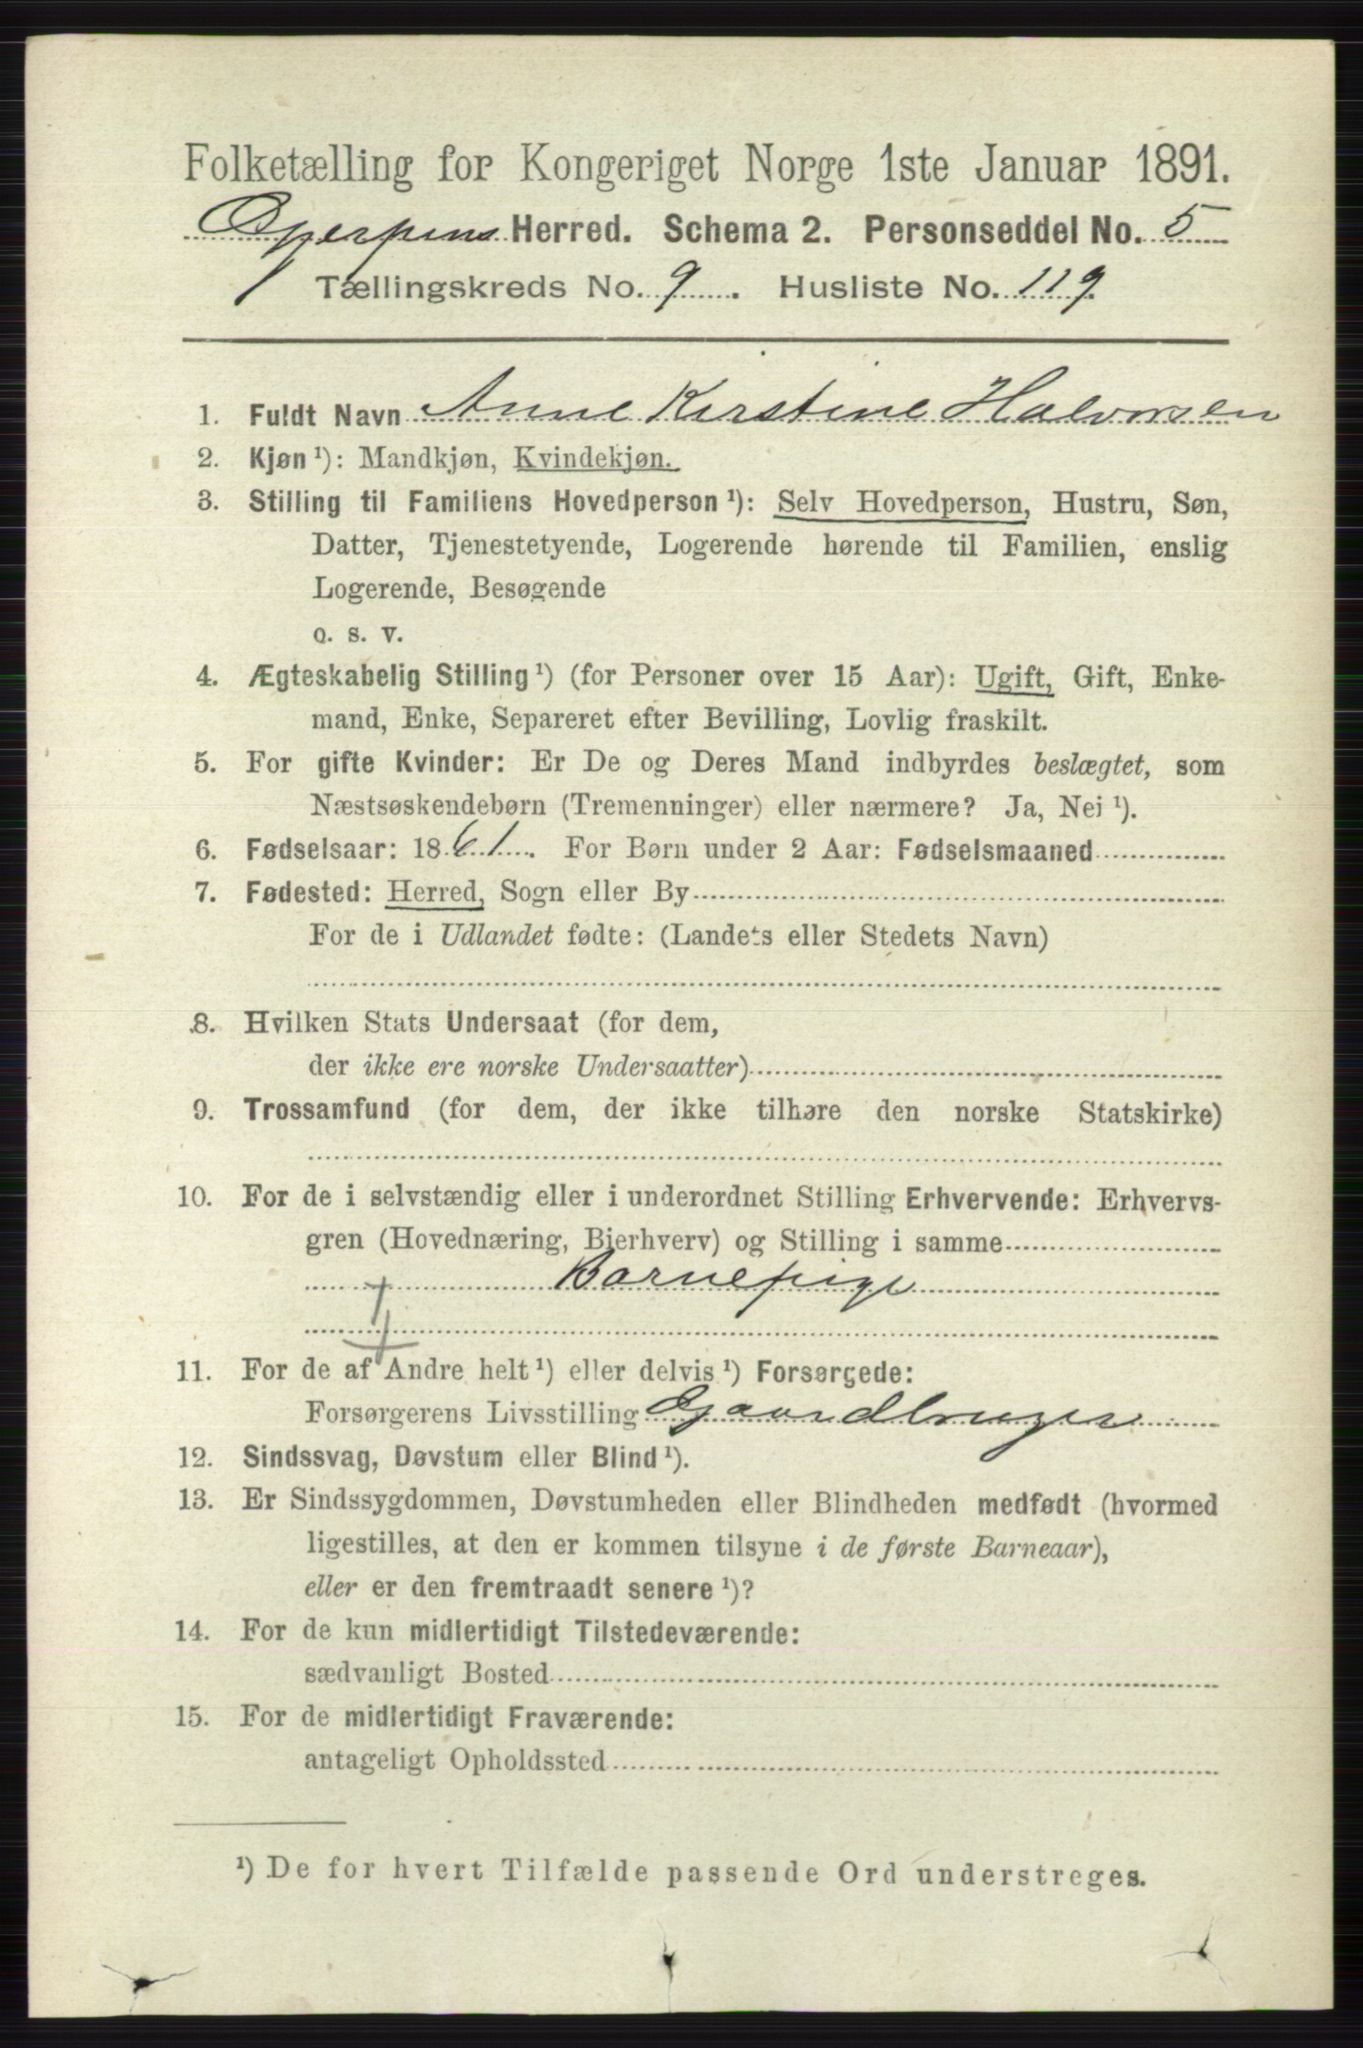 Folketælling for Kongeriget Norge 1ste Januar 1891.
Gjerpens Herred. Schema 2. Personseddel No. 5
Tællingskreds No. 9. Husliste No. 119.
1. Fuldt Navn Anne Kirstine Halvorsen
2. Kjøn ¹): Mandkjøn, Kvindekjøn.
3. Stilling til Familiens Hovedperson ¹): Selv Hovedperson, Hustru, Søn,
Datter, Tjenestetyende, Logerende hørende til Familien, enslig
Logerende, Besøgende
o. s. v.
4. Ægteskabelig Stilling ¹) (for Personer over 15 Aar): Ugift, Gift, Enke-
mand, Enke, Separeret efter Bevilling, Lovlig fraskilt.
5. For gifte Kvinder: Er De og Deres Mand indbyrdes beslægtet, som
Næstsøskendebørn (Tremenninger) eller nærmere? Ja, Nei ¹).
6. Fødselsaar: 1861. For Børn under 2 Aar: Fødselsmaaned
7. Fødested: Herred, Sogn eller By
For de i Udlandet fødte: (Landets eller Stedets Navn)
8. Hvilken Stats Undersaat (for dem,
der ikke ere norske Undersaatter)
9. Trossamfund (for dem, der ikke tilhøre den norske Statskirke)
10. For de i selvstændig eller i underordnet Stilling Erhvervende: Erhvervs-
gren (Hovednæring, Bierhverv) og Stilling i samme
Barnepige
11. For de af Andre helt ¹) eller delvis ¹) Forsørgede:
Forsørgerens Livsstilling Gaardbruger
12. Sindssvag, Døvstum eller Blind ¹).
13. Er Sindssygdommen, Døvstumheden eller Blindheden medfødt (hvormed
ligestilles, at den er kommen tilsyne i de første Barneaar),
eller er den fremtraadt senere ¹)?
14. For de kun midlertidigt Tilstedeværende:
sædvanligt Bosted
15. For de midlertidigt Fraværende:
antageligt Opholdssted
¹) De for hvert Tilfælde passende Ord understreges.